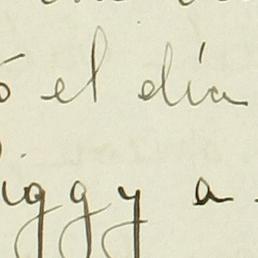 el día
iggy a